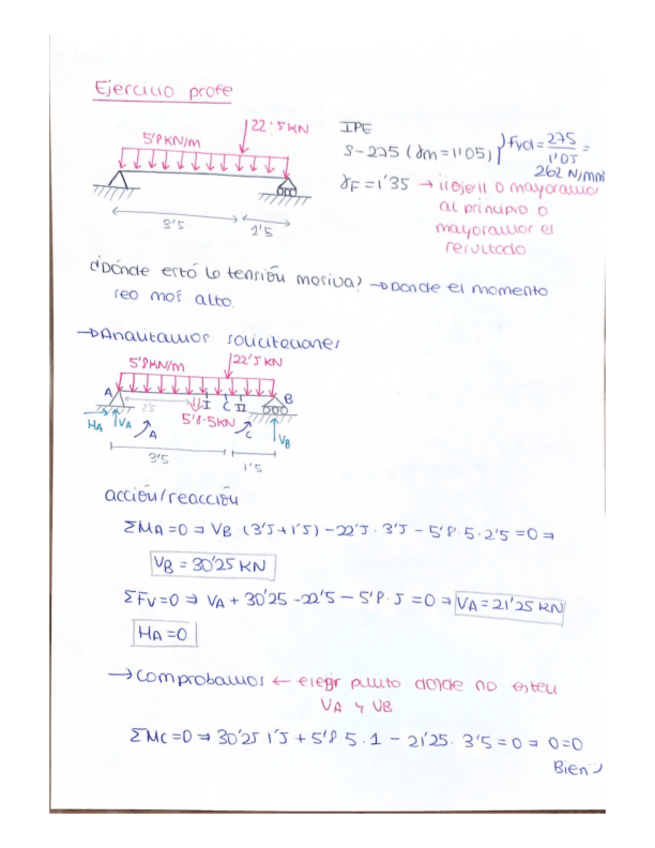 Ejercicio profe
22'5 KN
5'8 KN/m
3'5
1'5
IPE
S-275 (γm = 1'05) } Fyd = 275/1'05 = 262 N/mm²
γF = 1'35 → ¡¡ojo!! o mayoramos
al principio o
mayoramos el
resultado
¿Dónde está la tensión máxima? → Donde el momento
sea más alto.
→ Analizamos solicitaciones
5'8 KN/m
22'5 KN
A
I
C
II
B
2'5
5'8·5KN
HA
VA
A
C
VB
3'5
1'5
acción/reacción
ΣMA=0 ⇒ VB · (3'5+1'5) - 22'5 · 3'5 - 5'8 · 5 · 2'5 = 0 ⇒
VB = 30'25 KN
ΣFV=0 ⇒ VA + 30'25 - 22'5 - 5'8 · 5 = 0 ⇒ VA = 21'25 KN
HA = 0
→ Comprobamos ← elegir punto donde no estén
VA y VB
ΣMC=0 ⇒ 30'25 · 1'5 + 5'8 · 5 · 1 - 21'25 · 3'5 = 0 ⇒ 0=0
Bien :)